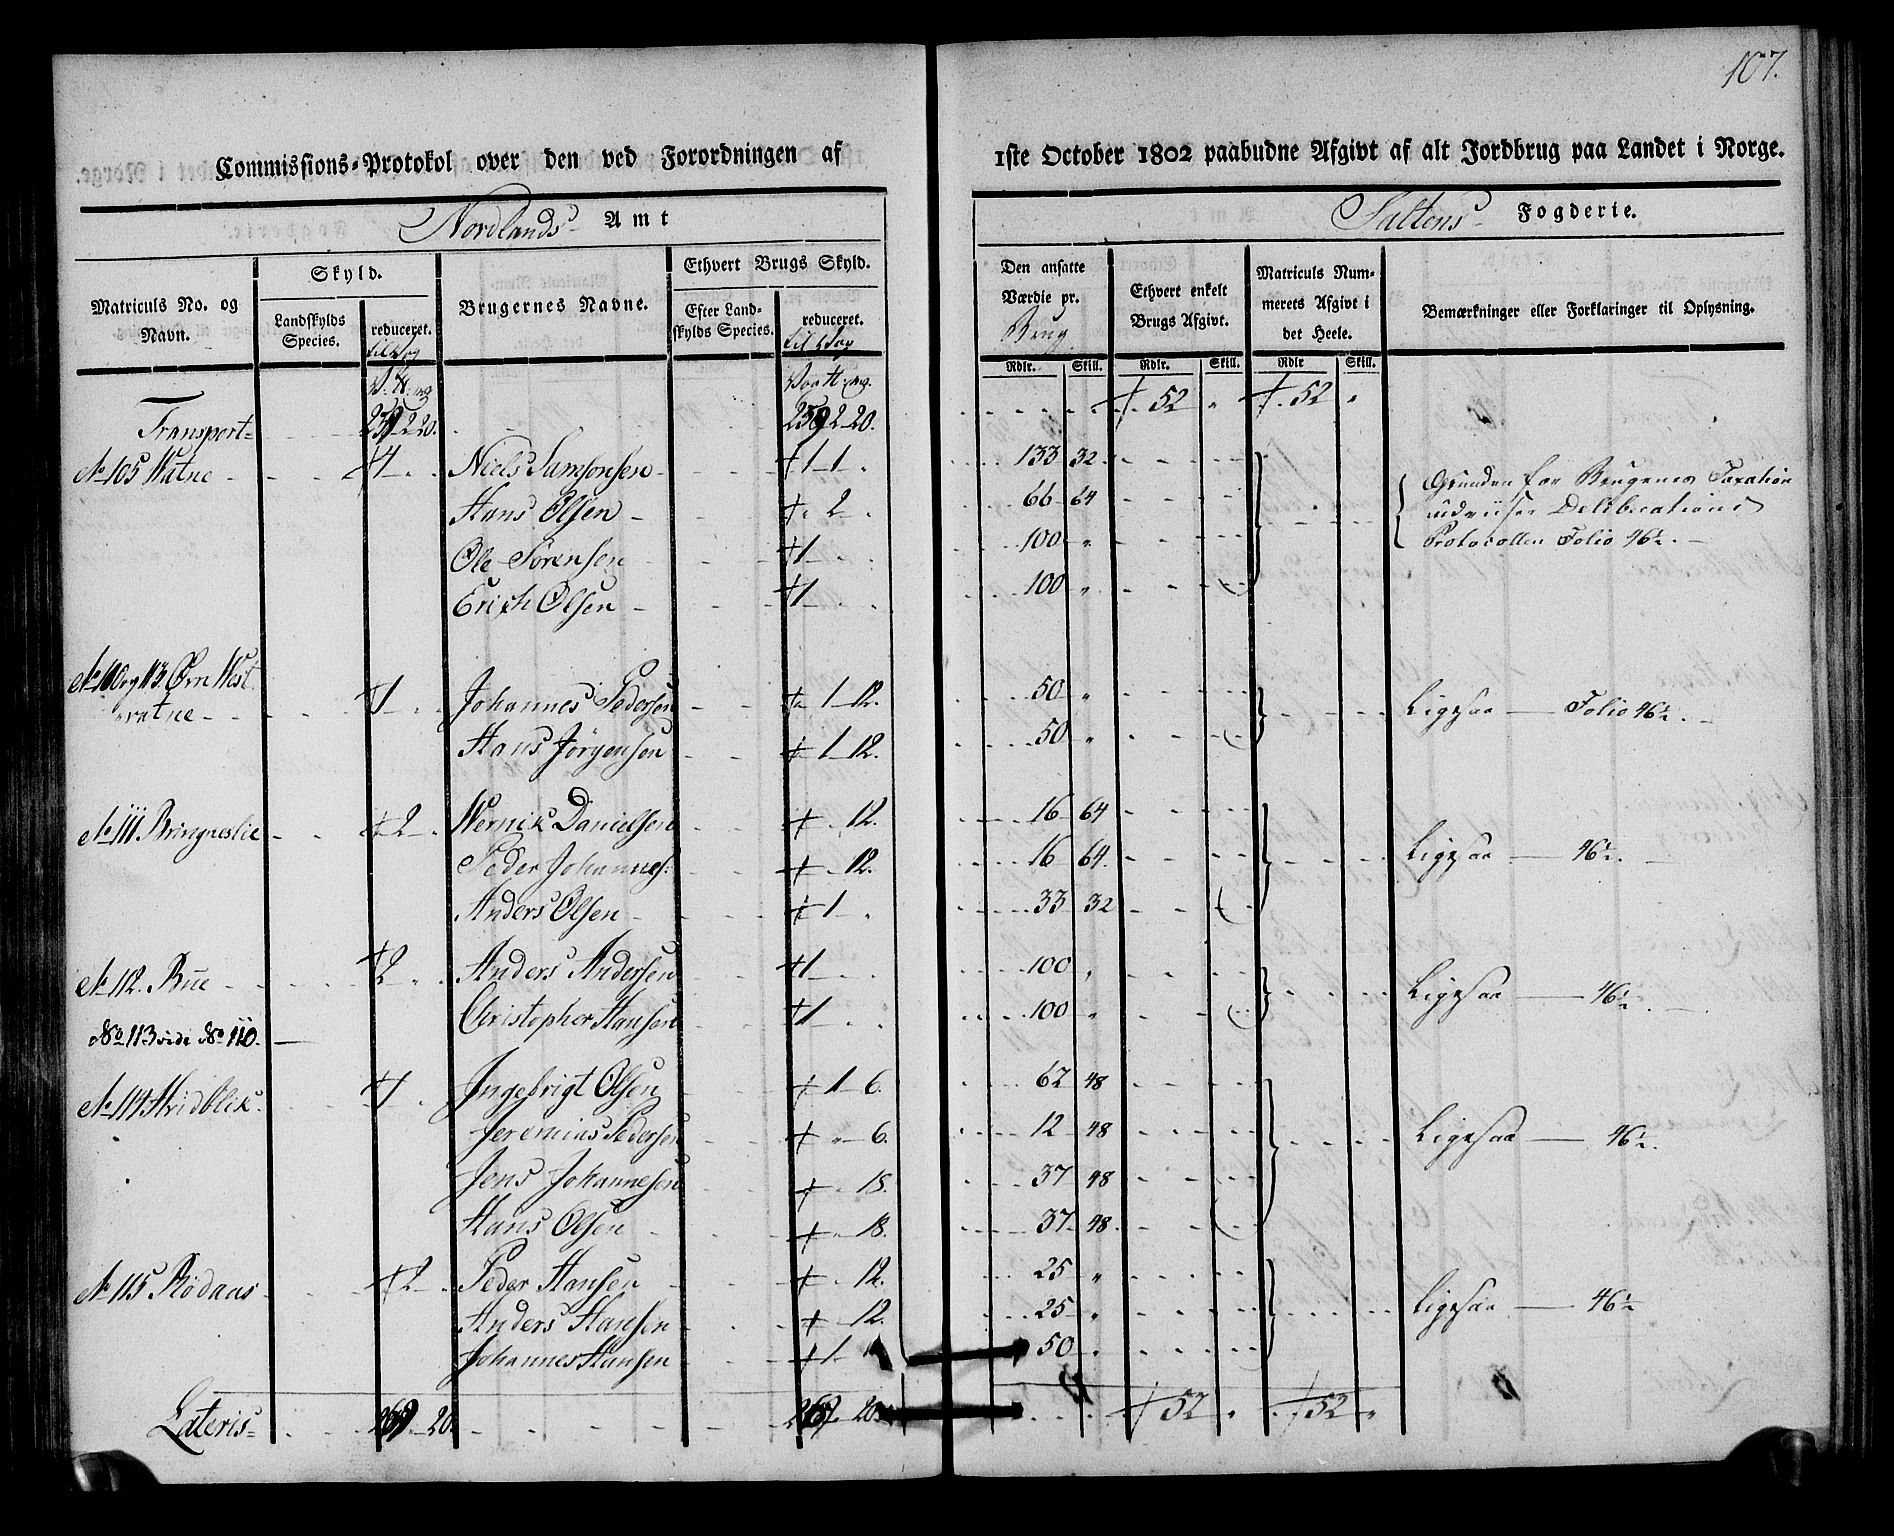 107.
Commissions-Protokol over den ved Forordningen af 1ste October 1802 paabudne Afgivt af alt Jordbrug paa Landet i Norge.
Nordlands Amt
Saltens Fogderie.
Matriculs No. og Navn.
Skyld.
Landskylds Species.
reduceret.
til Vog
Brugernes Navne.
Ethvert Brugs Skyld.
Efter Landskylds Species.
reduceret.
til Vog
Den ansatte Værdie pr.
Brug
Rdlr. Skill.
Ethvert enkelt Brugs Afgivt.
Rdlr. Skill.
Matriculs Nummerets Afgivt i det Heele.
Rdlr Skill.
Bemærkninger eller Forklaringer til Oplysning.
Transport 52 " 52 "
No 105 Watne 4 Niels Samsonsen 1 1 133 32 Grunden for Brugenes Taxation
Hans Olsen 2 66 64 udviiser Deliberations
Ole Sørensen 1 100 " Protocollen Folio 46½.
Erich Olsen 1 100 "
No 110 og 113 Øvn West
vatne 1 Johannes Pedersen 1 12. 50 " Ligesaa Folio 46½.
Hans Jørgensen 1 12. 50 "
No 111. Bringneslie 2 Wernik Danielsen 12. 16 64 Ligesaa 46½.
Peder Johannes: 12. 16 64.
Anders Olsen 1 33 32
No 112. Bue 2 Anders Andersen 1 100 " Ligesaa 46½.
Christopher Hansen 1 100 "
No 113 vide No 110.
No 114 Hvidblik 1 Ingebrigt Olsen 1 6. 62 48
Jeremias Pedersen " 6. 12 48 Ligesaa 46½.
Jens Johannesen 18. 37 48
Hans Olsen 18. 37 48.
No 115 Rødaas 2 Peder Hansen 12. 25 " Ligesaa 46½
Anders Hansen 12. 25 "
Johannes Hansen 1 50 "
Lateris 52 " 52 "